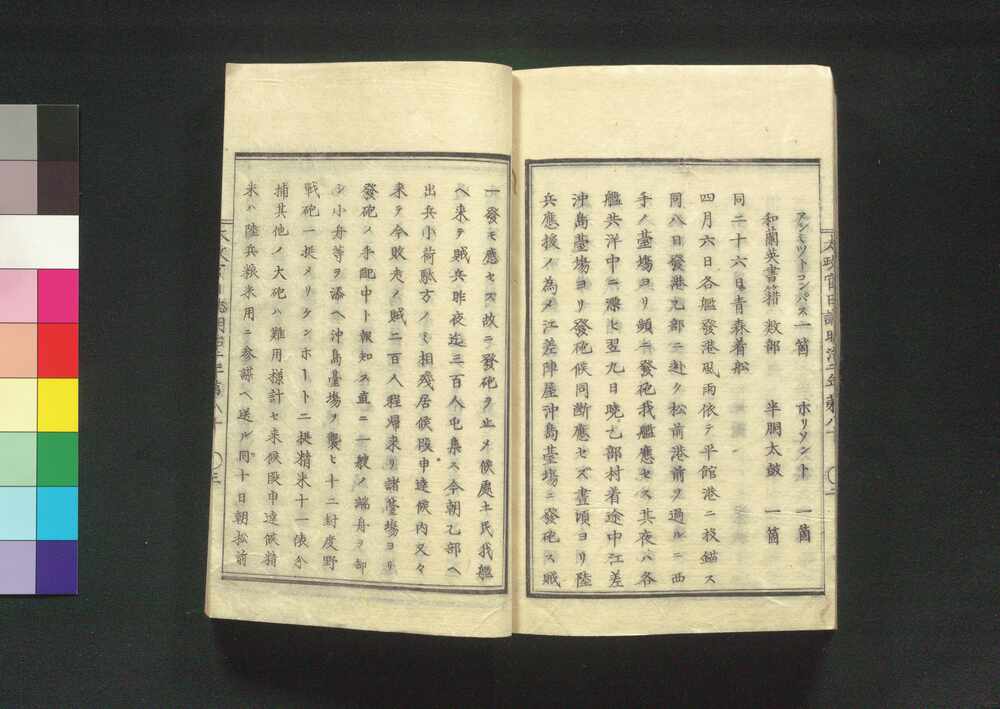 アシモツトコンパス一箇　ホリソント　一箇
和蘭英書籍　数部　半胴太鼓　一箇
同二十六日青森着船
四月六日各艦發港風雨依テ平館港ニ投錨ス
同八日發港乙部ニ赴ク松前港前ヲ過ルニ西
手ノ臺場ヨリ頻ニ發砲我艦應セス其夜ハ各
艦共洋中ニ漂ヒ翌九日曉乙部村着途中江差
沖島臺場ヨリ發砲候同断應セズ晝頃ヨリ陸
兵應援ノ為メ江差陣屋沖島臺場ニ發砲ス賊
一發モ應セス故ラ發砲ヲ止メ候處土民我艦
ヘ来テ賊兵昨夜迄三百人屯集ス今朝乙部ヘ
出兵小荷駄方ノミ相殘居候段申達候内又々
来テ今敗走ノ賊二百人程帰来リ諸臺場ヨリ
發砲ノ手配中ト報知ス直ニ一艘ノ端舟ヲ卸
シ小舟等ヲ添ヘ沖島臺場ヲ襲ヒ十二封度野
戰砲一挺メリケンボート二挺精米十一俵分
捕其他ノ大砲ハ難用様計セ来候段申達候精
米ハ陸兵粮米用ニ参謀ヘ送ル同十日朝松前